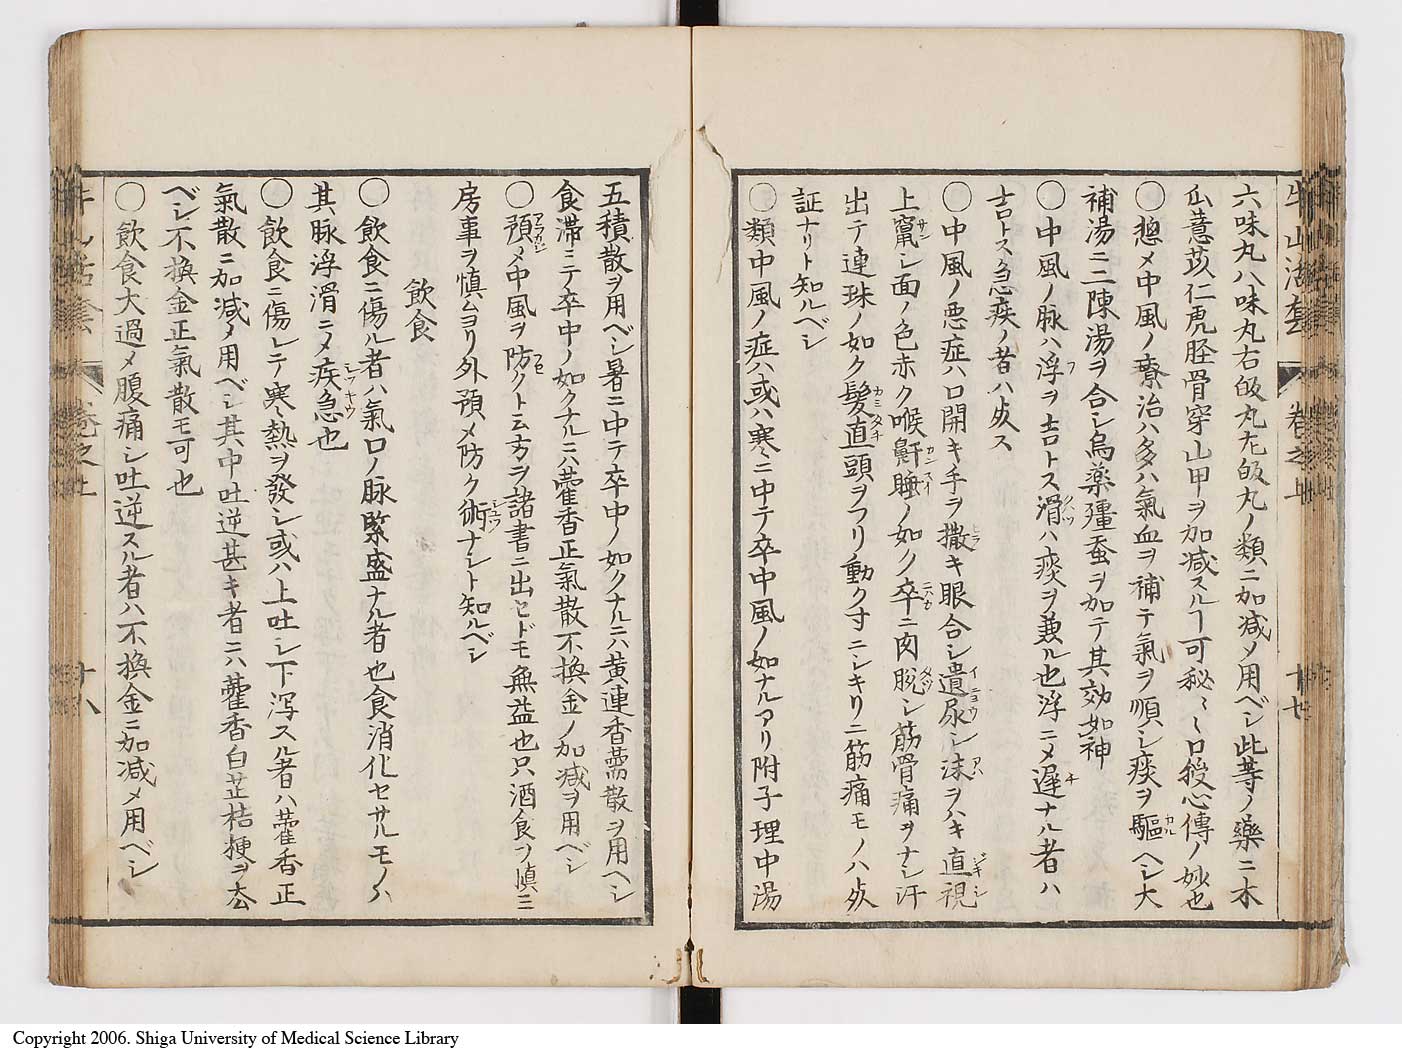 牛山活套 卷之上 十七
六味丸八味丸右皈丸左皈丸ノ類ニ加減〆用ベシ此等ノ藥ニ木
瓜薏苡仁虎脛骨穿山甲ヲ加減スルヿ可秘〻〻口授心傳ノ妙也
○惣〆中風ノ療治ハ多ハ氣血ヲ補テ氣ヲ順シ痰ヲ驅ヘシ大
補湯ニ二陳湯ヲ合シ烏藥殭蚕ヲ加テ其効如神
○中風ノ脉ハ浮ヲ吉トス滑ハ痰ヲ兼ル也浮ニ〆遲ナル者ハ
吉トス急疾ノ者ハ死ス
○中風ノ悪症ハ口開キ手ヲ撒キ眼合シ遺尿シ沫ヲハキ直視
上竄シ面ノ色赤ク喉鼾睡ノ如ク卒ニ肉脱シ筋骨痛ヲナシ汗
出テ連珠ノ如ク髮直頭ヲフリ動ク寸ニシキリニ筋痛モノハ死
証ナリト知ルベシ
○類中風ノ症ハ或ハ寒ニ中テ卒中風ノ如ナルアリ附子理中湯
五積散ヲ用ベシ暑ニ中テ卒中ノ如クナルニハ黄連香薷散ヲ用ヘシ
食滞ニテ卒中ノ如クナルニハ藿香正氣散不換金ノ加減ヲ用ベシ
○預〆中風ヲ防クト云方ヲ諸書ニ出セドモ無益也只酒食ヲ慎ミ
房事ヲ慎ムヨリ外預〆防ク術ナシト知ルベシ
飲食
○飲食ニ傷ル者ハ氣口ノ脉緊盛ナル者也食消化セサルモノハ
其脉浮滑ニ〆疾急也
○飲食ニ傷レテ寒熱ヲ發シ或ハ上吐シ下泻スル者ハ藿香正
氣散ニ加减〆用ベシ其中吐逆甚キ者ニハ藿香白芷桔梗ヲ去
ベシ不換金正氣散モ可也
○飲食大過〆腹痛シ吐逆スル者ハ不換金ニ加减〆用ベシ
牛山活套 卷之上 十八
Copyright 2006. Shiga University of Medical Science Library